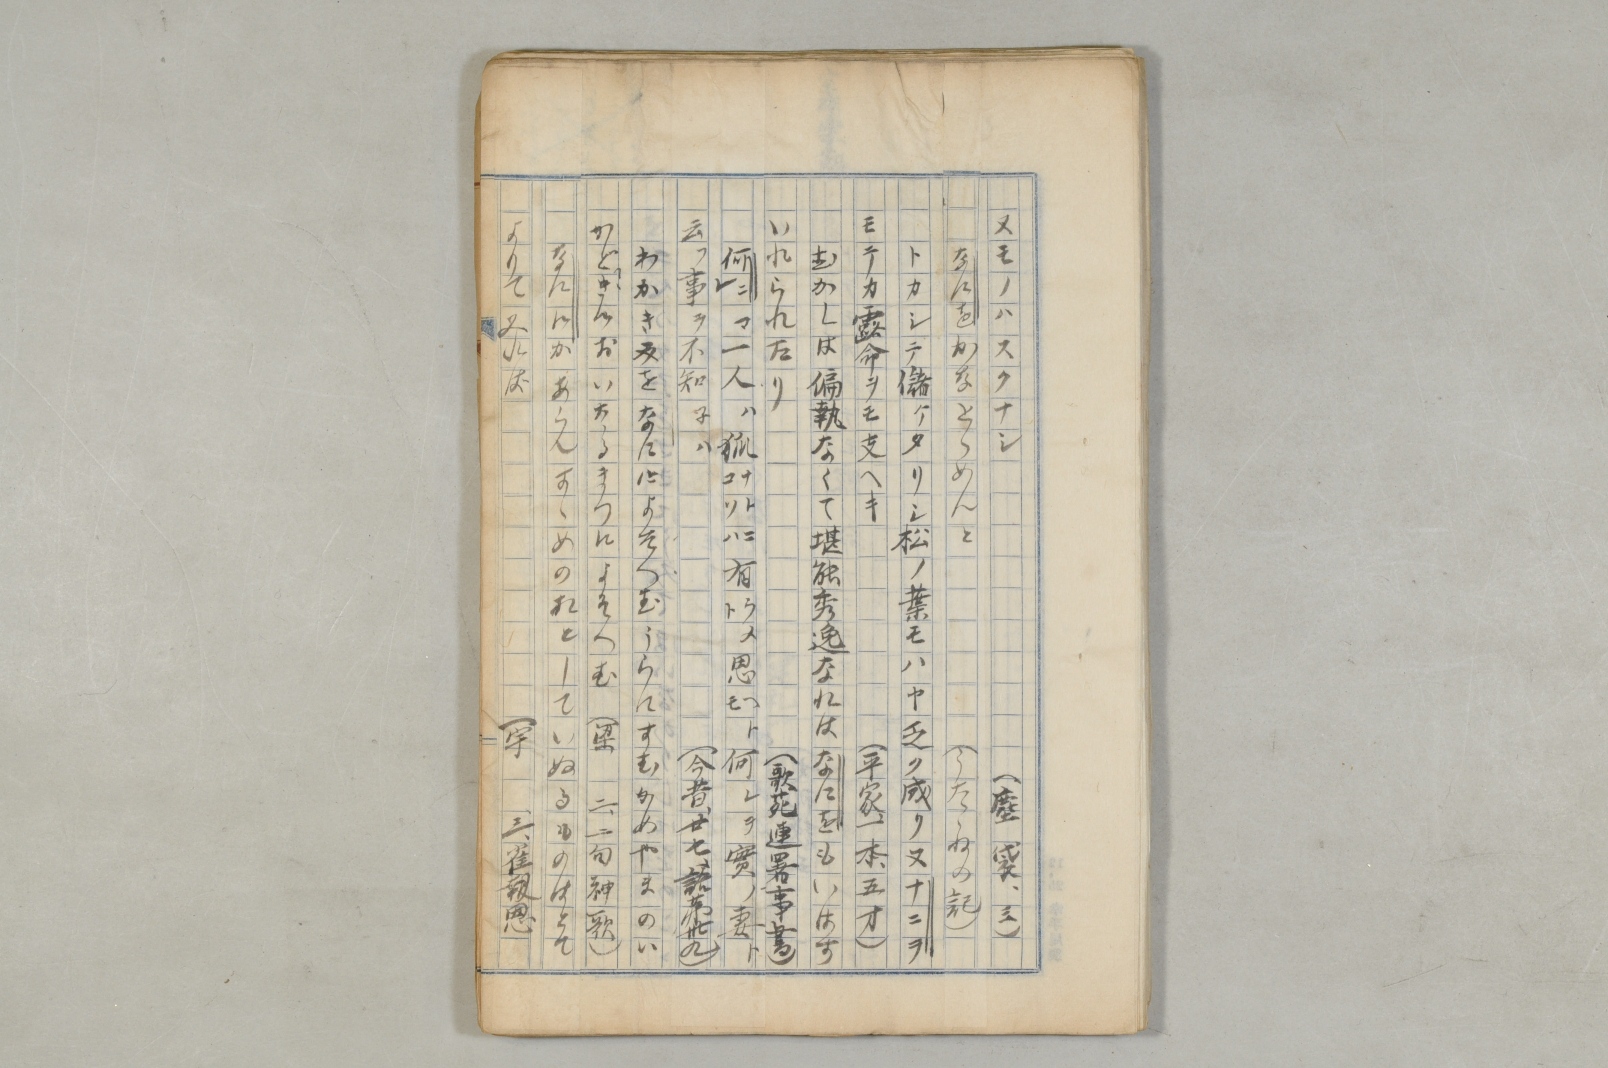 又モノハスクナシ（塵袋、三）
なにをかなとゝめんと（うたゝねの記）
トカシテ儲ケタリシ松ノ葉モハヤ乏ク成リ又ナニヲ
モテカ露命ヲモ支ヘキ（平家、一本、五オ）
むかしは偏執なくて堪能秀逸なれはなにをもいはす
いれられたり（歌苑連署事書）
何ニマ一人ハ狐ナトニコソハ有ラメト思ヘトモ何レヲ實ノ妻ト
云フ事ヲ不知子ハ（今昔、廿七、語第卅九）
わかき反をなにによそへむうらにすむかめやまのい
かときしにおいたるまつによそへむ（梁 二、二句神歌）
なににかあらんすゝめのおとしていぬるものはとて
よりてみれは（宇 三、雀報恩